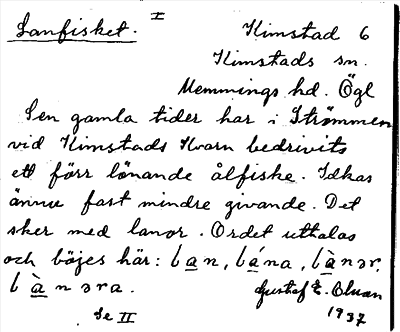 Lanfisket. I Kimstad 6
Kimstads sn.
Memmings hd. Ögl
Sen gamla tider har i Strömmen
vid Kimstads Kvarn bedrivits
ett förr lönande ålfiske. Idkas
ännu fast mindre givande. Det
sker med lanor. Ordet uttalas
och böjes här: lan, lána, lànər,
lànəra. Gustaf E. Olman
Se II 1937